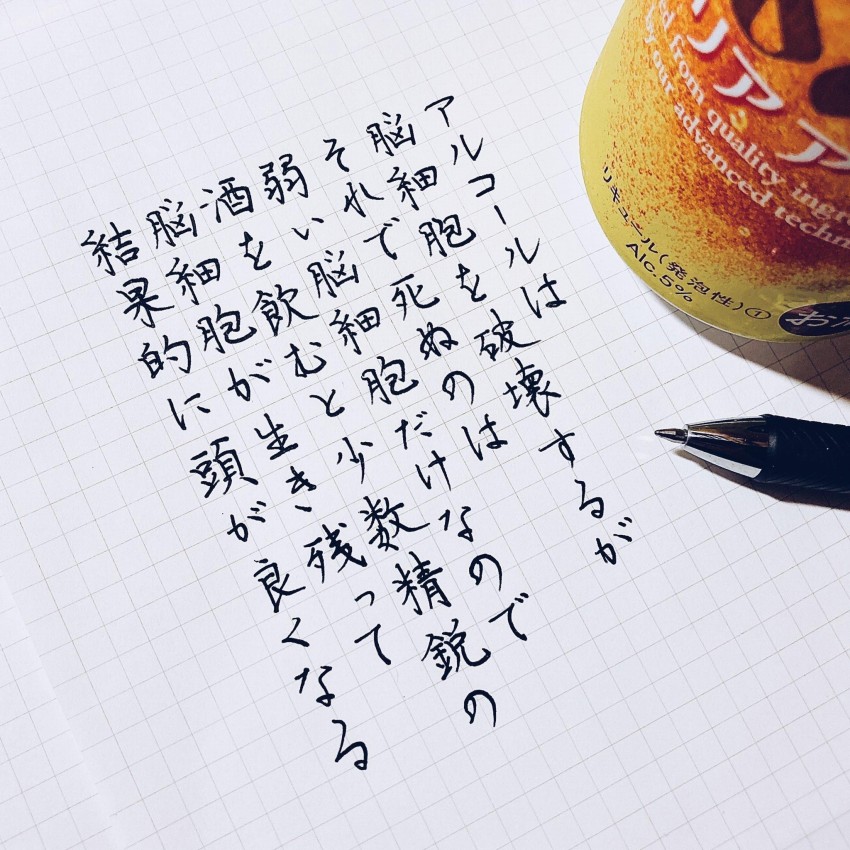 アルコールは
脳細胞を破壊するが
それで死ぬのは
弱い脳細胞だけなので
酒を飲むと少数精鋭の
脳細胞が生き残って
結果的に頭が良くなる
リア
from quality
our advanced
リキュール(発泡性)①
Alc.5%
お